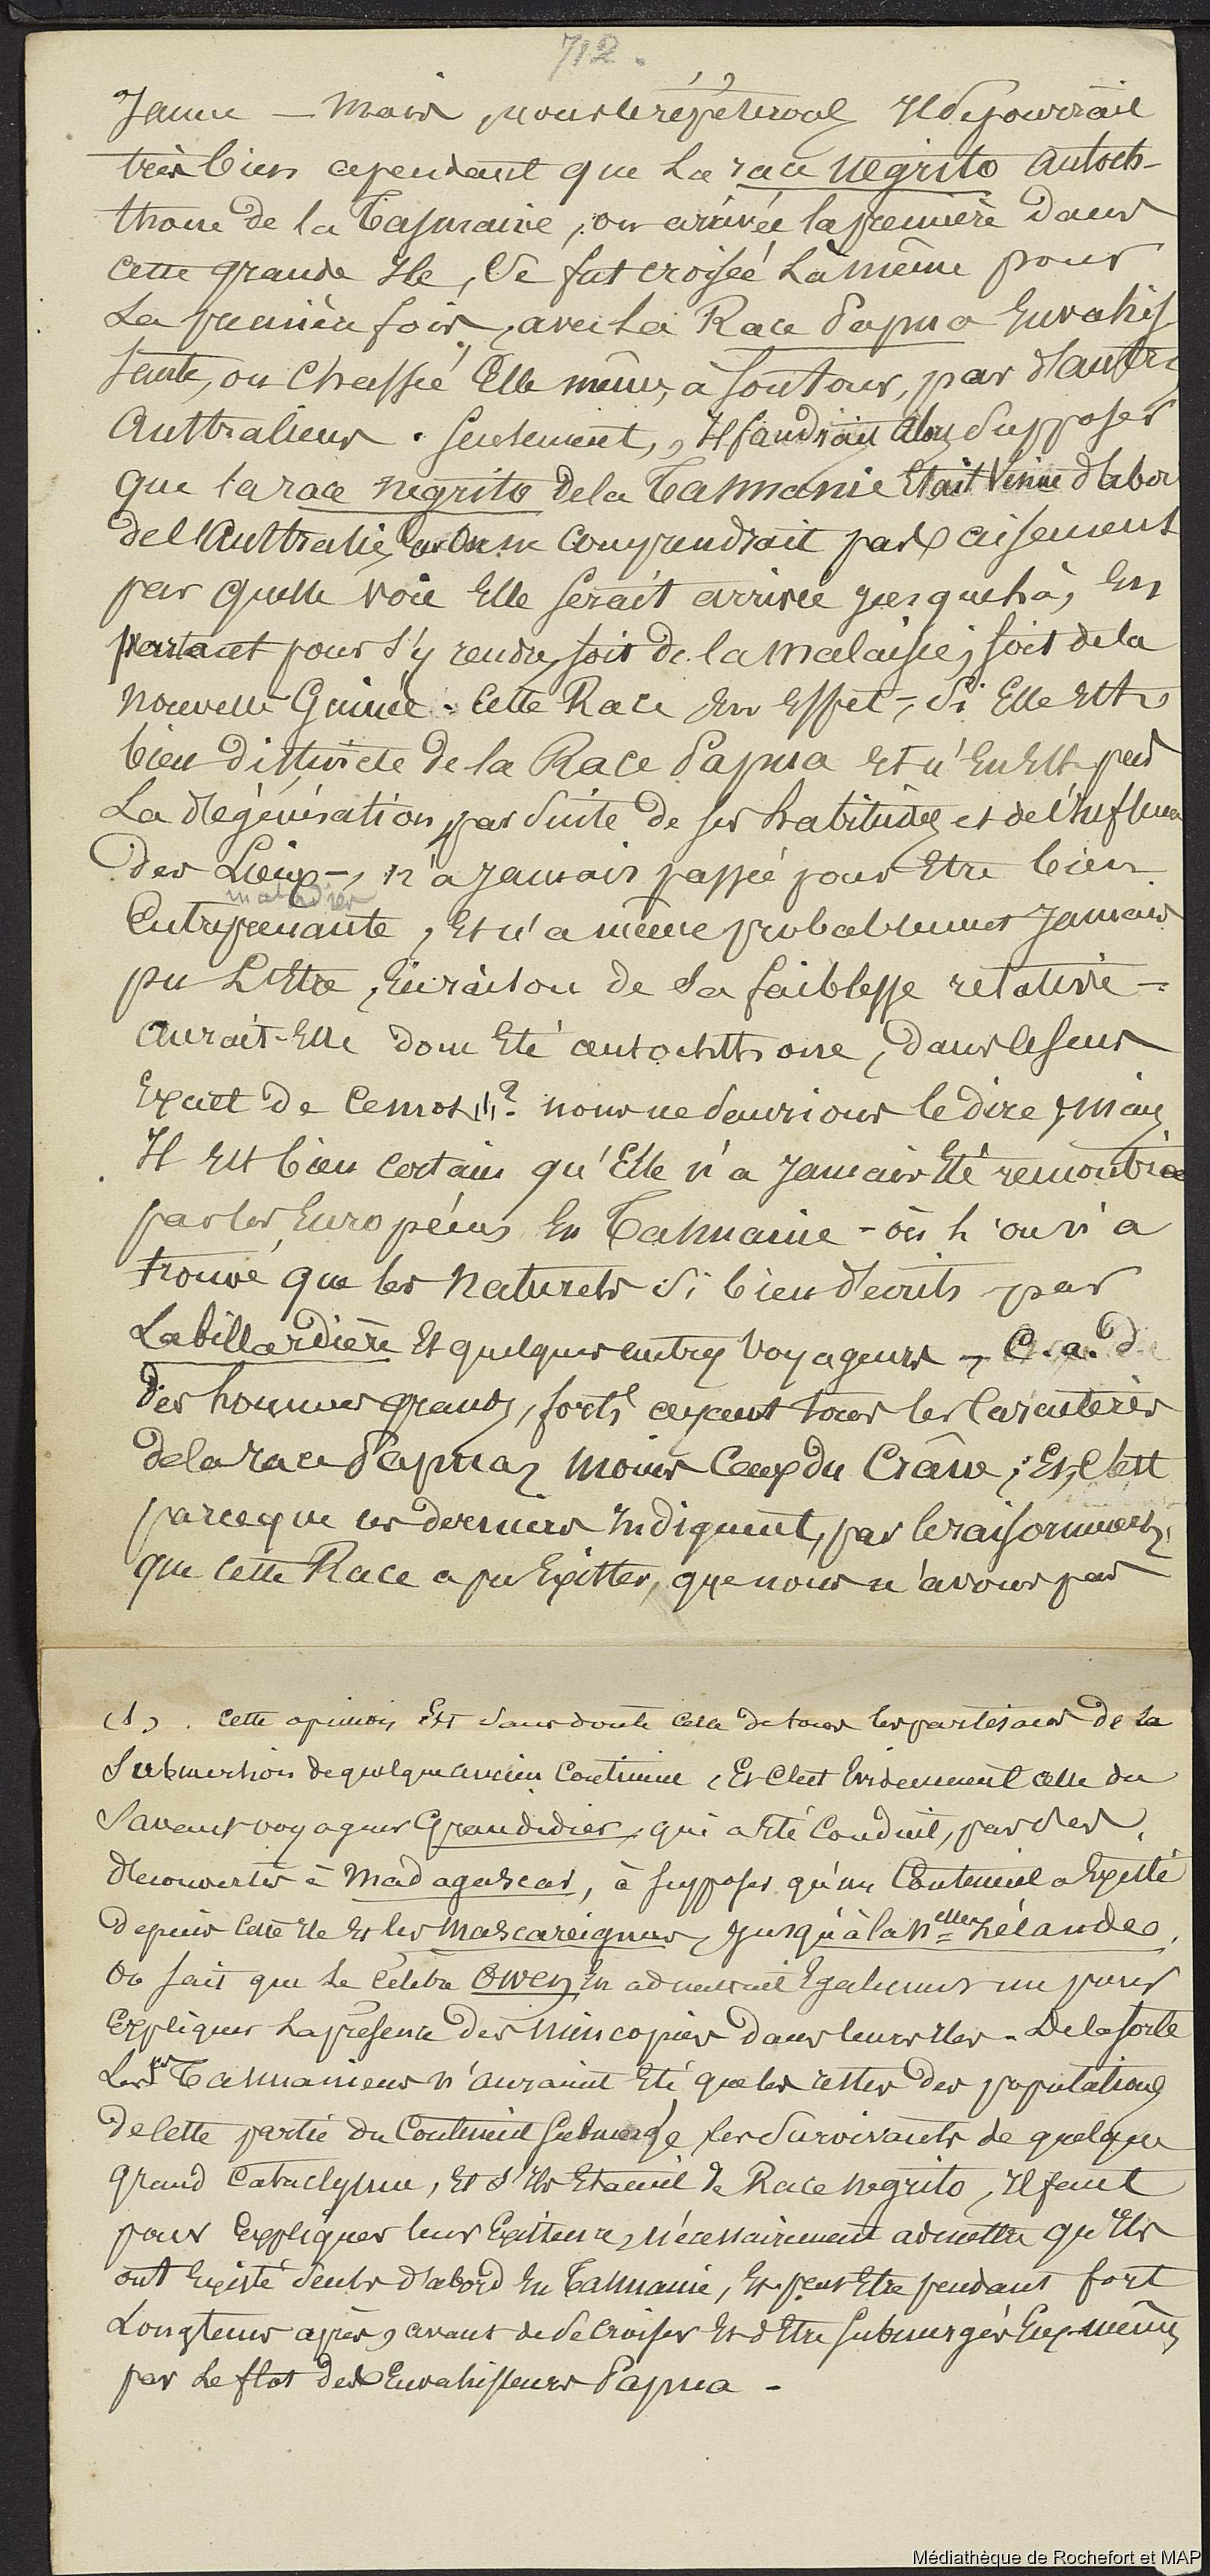 712.
Jaune — Mais, nous le répéterons, Il se pourrait
très bien cependant que la race Négrito Autoch-
thone de la Tasmanie, ou arrivée la première dans
cette grande Ile, Se fut croisée Là même pour
La première fois, avec La Race Papua Envahis
sante, ou Chassée Elle même, à son tour, par d'autres
Australiens. Seulement, Il faudrait alors Supposer
que la race négrito de la Tasmanie Etait Venue d'abor
de l'Australie, On ne comprendrait pas aisement
par quelle Voie Elle serait arrivée jusque là, En
partant pour s'y rendre, soit de la Malaisie, soit de la
Nouvelle Guinée. Cette Race En Effet -, Si Elle Est
bien distincte de la Race Papua Et n'En Est pas
La dégénération, par Suite de ses habitudes et de l'influence
des Lieux -, n'a jamais passée pour Etre bien
Entreprenante, Et n'a même probablement Jamais
pu L'Etre, En raison de Sa faiblesse relative -
Aurait-Elle donc Eté autochthone, dans le sens
Exact de ce mot (1)? nous ne Saurions le dire, mais
Il Est bien certain qu'Elle n'a Jamais Eté rencontrée
par les Européens En Tasmanie - où l'on n'a
trouvé que les Naturels Si bien décrits par
Labillardière Et quelques autres Voyageurs -, C. a. d
des hommes grands, forts ayant tous les Caractères
de la race Papua, moins Ceux du Crâne; Et, C'est
parceque ces derniers Indiquent, par le raisonnement,
que cette Race a pu Exister, que nous n'avons pas
(1). Cette opinion Est Sans doute Celle de tous les partisans de la
Submersion de quelque ancien Continent, Et C'est Evidemment celle du
Savant voyageur Grandidier, qui a Eté Conduit, par Ses
découvertes à Madagascar, à supposer qu'un Continent a Existé
depuis cette Ile Et les Mascareignes, jusqu'à la Nelle Zélande.
On sait que Le Célèbre Owen En admettait Egalement un pour
Expliquer La présence des Mincopies dans leurs Iles - De la sorte
Les 1ers Tasmaniens n'auraient Eté que les restes des populations
de Cette partie du Continent Submergé, les Survivants de quelque
grand Cataclysme, Et S'Ils Etaient de Race Négrito, Il faut
pour Expliquer leur Existence, nécessairement admettre qu'Ils
ont Existé Seuls d'abord En Tasmanie, Et peut Etre pendant fort
Longtems après, avant de Se Croiser Et d'Etre Submergés Eux-mêmes
par Le flot des Envahisseurs Papua -
Médiathèque de Rochefort et MAP